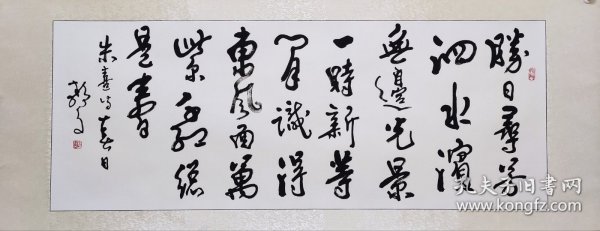 勝日尋芳
泗水濱
無邊光景
一時新等
閑識得
東風面萬
紫千紅總
是春
朱熹詩春日
孔夫子旧书网
www.kongfz.com